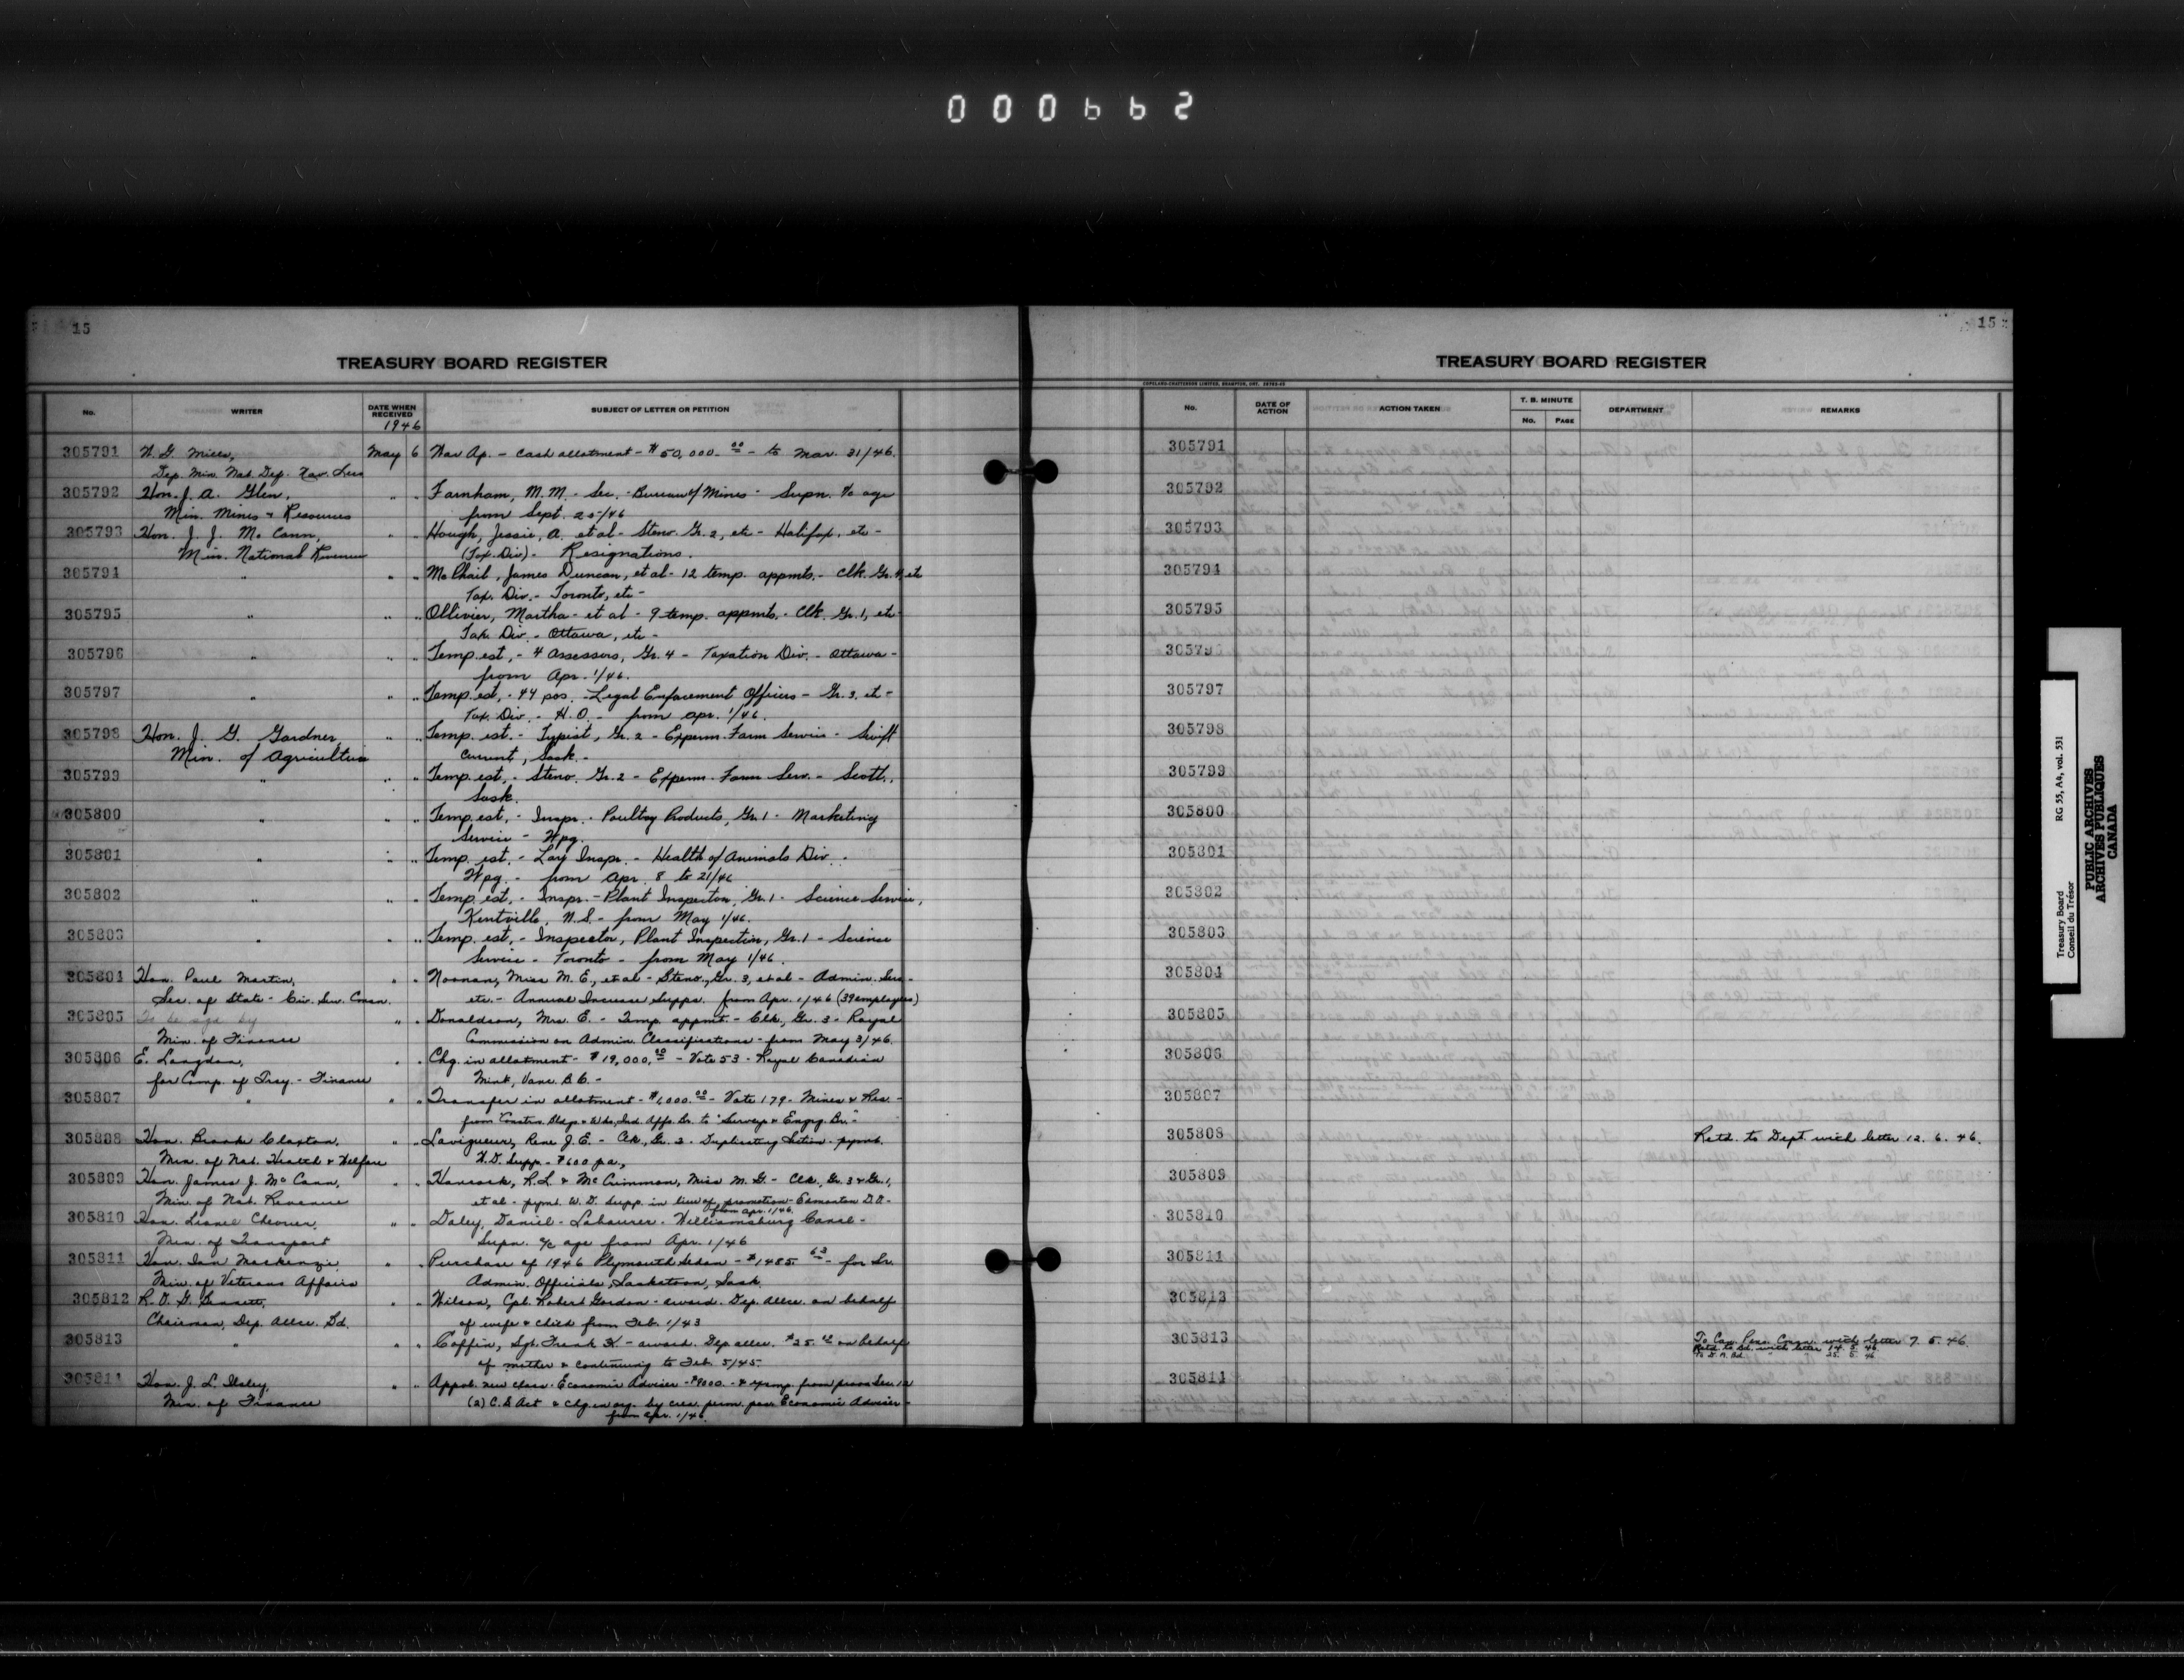 000662
15
TREASURY BOARD REGISTER
No. WRITER DATE WHEN RECEIVED SUBJECT OF LETTER OR PETITION
1946
305791 W. G. Mills, May 6 War Ap. - Cash allotment - $50,000.00 - to Mar. 31/46.
Dep. Min. Nat. Def. Nav. Serv.
305792 Hon. J. A. Glen, " " Farnham, M. M. - Sec. - Bureau of Mines - Supn. a/c age
Min. Mines & Resources from Sept. 25/46
305793 Hon. J. J. McCann, " " Hough, Jessie, A. et al - Steno. Gr. 2, etc - Halifax, etc -
Min. National Revenue (Tax. Div) - Resignations.
305794 " " " McPhail, James Duncan, et al - 12 temp. appmts. - Clk. Gr. 4, etc
Tax. Div. - Toronto, etc -
305795 " " " Ollivier, Martha - et al - 9 temp. appmts. - Clk. Gr. 1, etc -
Tax. Div. - Ottawa, etc -
305796 " " " Temp. est. - 4 Assessors, Gr. 4 - Taxation Div. - Ottawa -
from Apr. 1/46.
305797 " " " Temp. est. - 44 pos. - Legal Enfacement Officers - Gr. 3, etc -
Tax. Div. - H.O. - from Apr. 1/46.
305798 Hon. J. G. Gardner " " Temp. est. - Typist, Gr. 2 - Experm. Farm Service - Swift
Min. of Agriculture Current, Sask. -
305799 " " " Temp. est. - Steno. Gr. 2 - Experm. Farm Serv. - Scott,
Sask.
305800 " " " Temp. est. - Inspr. - Poultry Products, Gr. 1 - Marketing
Service - Wpg.
305801 " " " Temp. est. - Lay Inspr. - Health of Animals Div. -
Wpg. - from Apr. 8 to 21/46
305802 " " " Temp. est. - Inspr. - Plant Inspection, Gr. 1 - Science Service,
Kentville, N.S. - from May 1/46.
305803 " " " Temp. est. - Inspector, Plant Inspection, Gr. 1 - Science
Service - Toronto - from May 1/46.
305804 Hon. Paul Martin, " " Noonan, Miss M. E., et al - Steno., Gr. 3, et al - Admin. Serv. -
Sec. of State - Civ. Serv. Comsn. etc. - Annual Increase Supps. from Apr. 1/46 (39 employees)
305805 To be sgd. by " " Donaldson, Mrs. E. - Temp. appmt. - Clk., Gr. 3 - Royal
Min. of Finance Commission on Admin. Classifications - from May 3/46.
305806 E. Langdon, " " Chg. in allotment - $19,000.00 - Vote 53 - Royal Canadian
for Comp. of Trsy. - Finance Mint, Vanc. B.C. -
305807 " " " Transfer in allotment - $1,000.00 - Vote 179 - Mines & Res. -
from "Constrn. Bldgs. & Wks., Ind. Affs. Br. to "Surveys & Engrg. Br."
305808 Hon. Brooke Claxton, " " Lavigueur, Rene J. E. - Clk., Gr. 2 - Duplicating Section - pymt.
Min. of Nat. Health & Welfare W.D. Supp. - $600 pa,
305809 Hon. James J. McCann, " " Hancock, R.L. & McCrimmon, Miss M. G. - Clk., Gr. 3 & Gr. 1,
Min. of Nat. Revenue et al - pymt. W. D. Supp. in lieu of promotion - Edmonton D.O. -
from Apr. 1/46.
305810 Hon. Lionel Chevrier, " " Daley, Daniel - Labourer - Williamsburg Canal -
Min. of Transport Supn. a/c age from Apr. 1/46
305811 Hon. Ian Mackenzie, " " Purchase of 1946 Plymouth Sedan - $1485.63 - for Sr.
Min. of Veterans Affairs Admin. Officials, Saskatoon, Sask.
305812 R. O. G. Bennett, " " Wilson, Cpl. Robert Gordon - award. Dep. allce. on behalf
Chairman, Dep. Allce. Bd. of wife & child from Feb. 1/43
305813 " " " Coffin, Sgt. Frank K. - award. Dep. allce. $25.00 on behalf
of mother & continuing to Feb. 5/45 -
305814 Hon. J. L. Ilsley, " " Approb. new class - Economic Adviser - $9000. - & exemp. from provn Sec. 12
Min. of Finance (2) C.S. Act & chg. in org. by crea. perm. pos. Economic Adviser -
from Apr. 1/46.
15
TREASURY BOARD REGISTER
COPELAND-CHATTERSON LIMITED, BRAMPTON, ONT.
No. DATE OF ACTION ACTION TAKEN T. B. MINUTE No. PAGE DEPARTMENT REMARKS
305791
305792
305793
305794
305795
305796
305797
305798
305799
305800
305801
305802
305803
305804
305805
305806
305807
305808 Retd. to Dept. with letter 12. 6. 46.
305809
305810
305811
305813
305813 To Can. Pens. Comsn. with letter 7. 5. 46.
Retd. to Bd. with letter 14. 5. 46
To D. A. Bd. " " 25. 5. 46
305814
Treasury Board RG 55, A4, vol. 531
Conseil du Trésor
PUBLIC ARCHIVES
ARCHIVES PUBLIQUES
CANADA